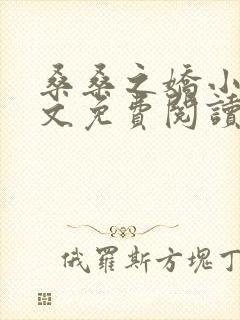 桑桑之嬌小
文免費閱讀
俄羅斯方塊丁